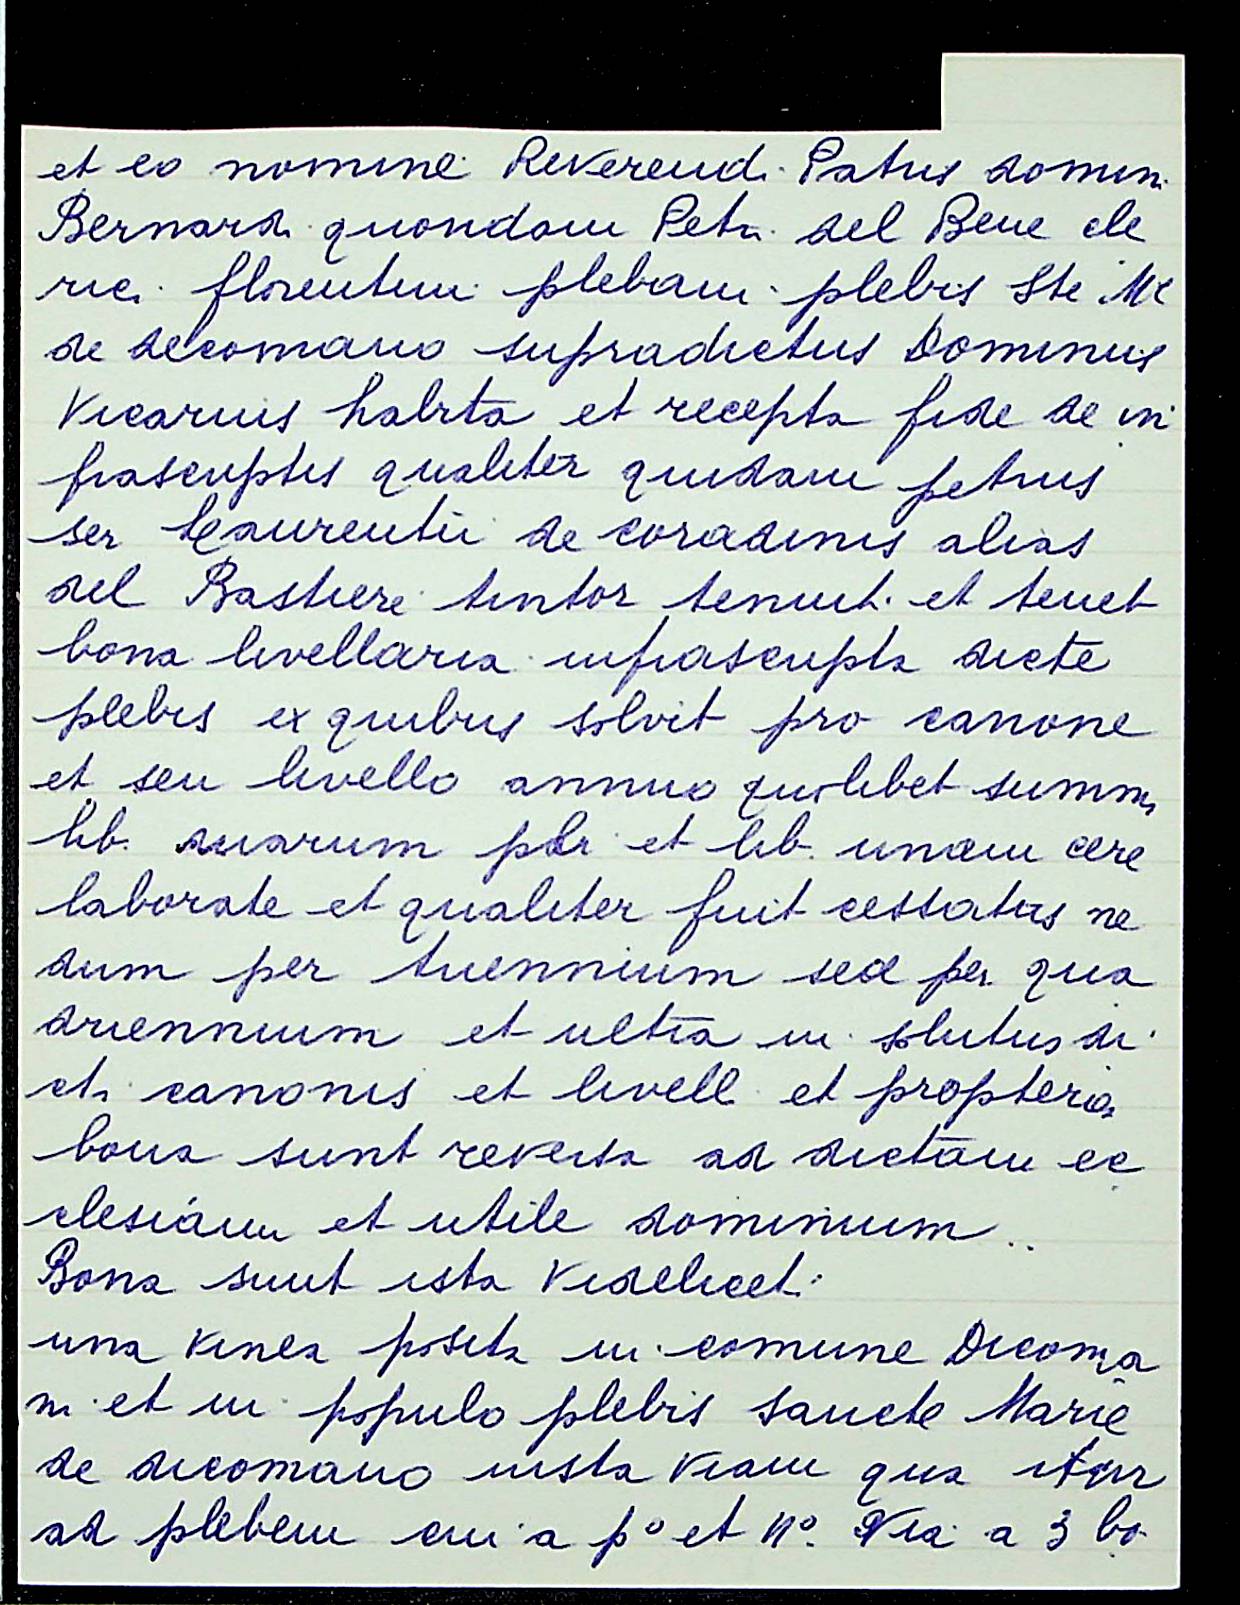 et eo nomine Reverend. Patris domin.
Bernardi quondam Petri del Bene cle
rici florentini plebani plebis Ste Me
de decomano supradictus Dominus
Vicarius habita et recepta fide de in
frascriptis qualiter quidam petrus
ser Laurentii de coradinis alias
del Bastiere tintor tenuit et tenet
bona livellaria infrascripta dicte
plebis ex quibus solvit pro canone
et seu livello annuo quolibet summ
lib. duarum pbi et lib. unam cere
laborate et qualiter fuit cessatus ne
dum per triennium sed per qua
driennium et ultra in solutus di
cti canonis et livell et propterea
bona sunt reversa ad dictam ec
clesiam et utile dominium ..
Bona sunt ista videlicet:
una vinea posita in comune Dicoma
ni et in populo plebis sancte Marie
de dicomano iusta viam qua itur
ad plebem cui a po et no. Via a 3 bo